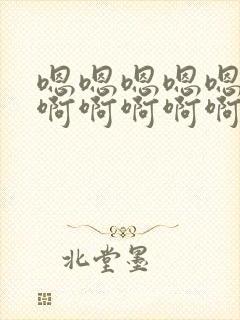 嗯嗯嗯嗯嗯
啊啊啊啊啊
北堂墨